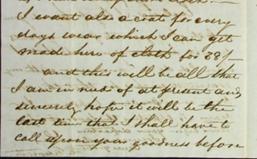 I want also a coat for every
days wear which I can get
made here of cloth for 28/-
and this will be all that
I am in need of at present and
sincerely hope it will be the
last time that I shall have to
call upon your goodness before